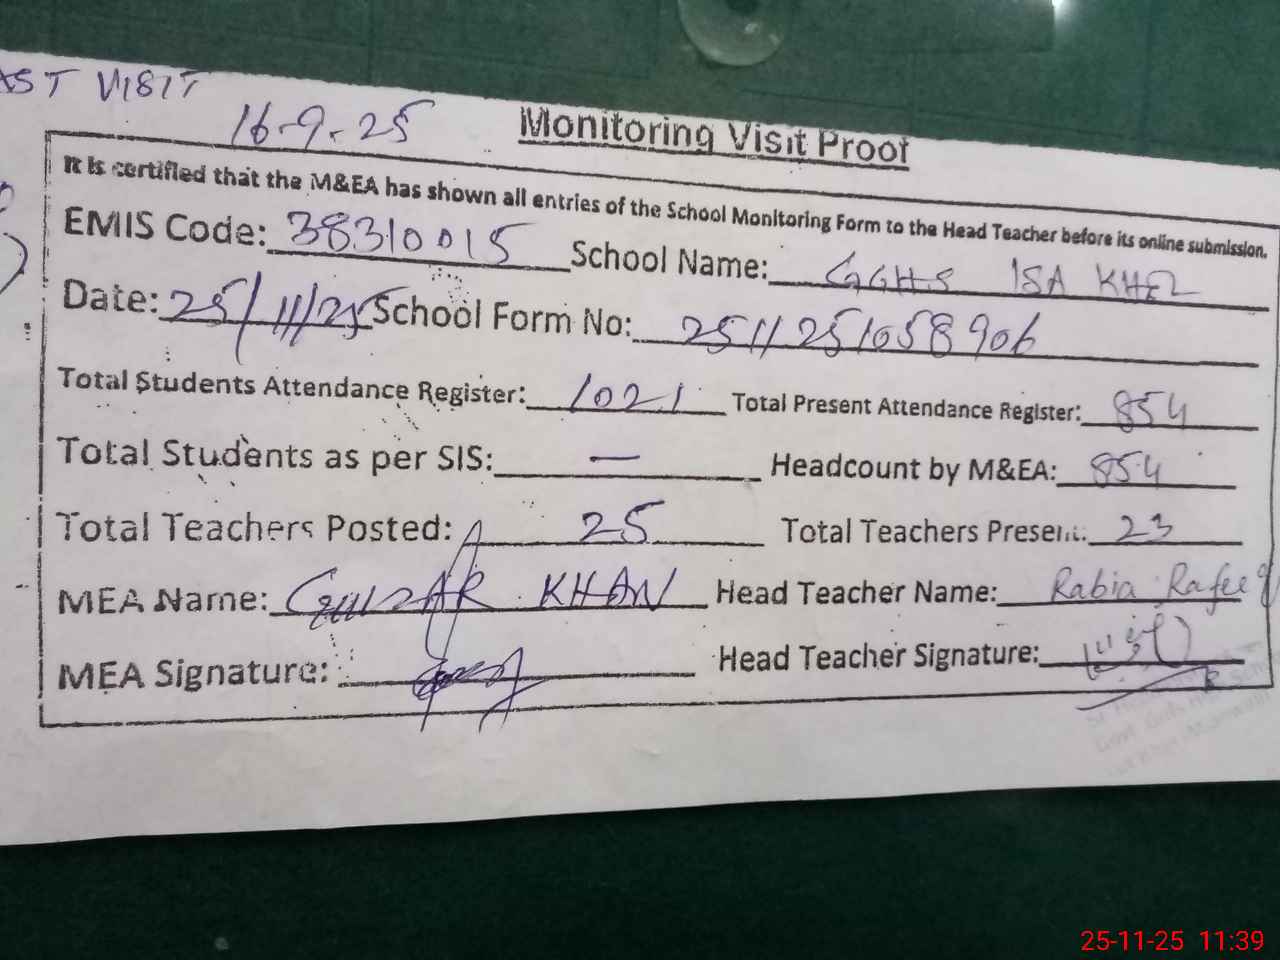 AST VISIT
16-9-25
Monitoring Visit Proof
It is certified that the M&EA has shown all entries of the School Monitoring Form to the Head Teacher before its online submission.
EMIS Code: 38310015 School Name: GGHS ISA KHEL
Date: 25/11/25 School Form No: 2511251058906
Total Students Attendance Register: 1021 Total Present Attendance Register: 854
Total Students as per SIS: — Headcount by M&EA: 854
Total Teachers Posted: 25 Total Teachers Present: 23
MEA Name: GULZAR KHAN Head Teacher Name: Rabia Rafeeq
MEA Signature: Head Teacher Signature:
25-11-25 11:39